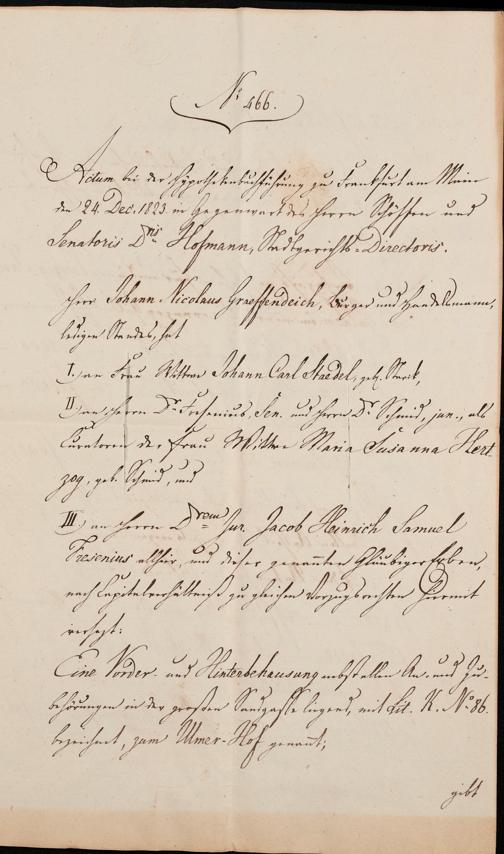 No 466.
Actum bei der Hypothekenbuchführung zu Frankfurt am Main
den 24. Dec. 1823 in Gegenwart des Herrn Schöffen und
Senatoris Dnis Hofmann, Stadtgerichts-Directoris.
Herr Johann Nicolaus Graeffendeich, Bürger und Handelsmann,
ledigen Standes, hat
I., an Frau Wittwe Johann Carl Staedel, geb.
II., an Herrn Dr. Fresenius, Sen. und Herrn Dr. Schmid, jun., als
Curatoren der Frau Wittwe Maria Susanna Hert-
zog, geb. Schmid, und
III., an Herrn Drem Jur. Jacob Heinrich Samuel
Fresenius allhier, und dieser genannten Gläubiger Erben,
nach Capitalverhältniß zu gleichen Vorzugsrechten hiermit
versezt:
Eine Vorder- und Hinterbehausung nebst allen An- und Zu-
behörungen in der großen Sandgasse liegend, mit Lit. K. No 86.
bezeichnet, zum Ulmer-Hof genannt;
gibt